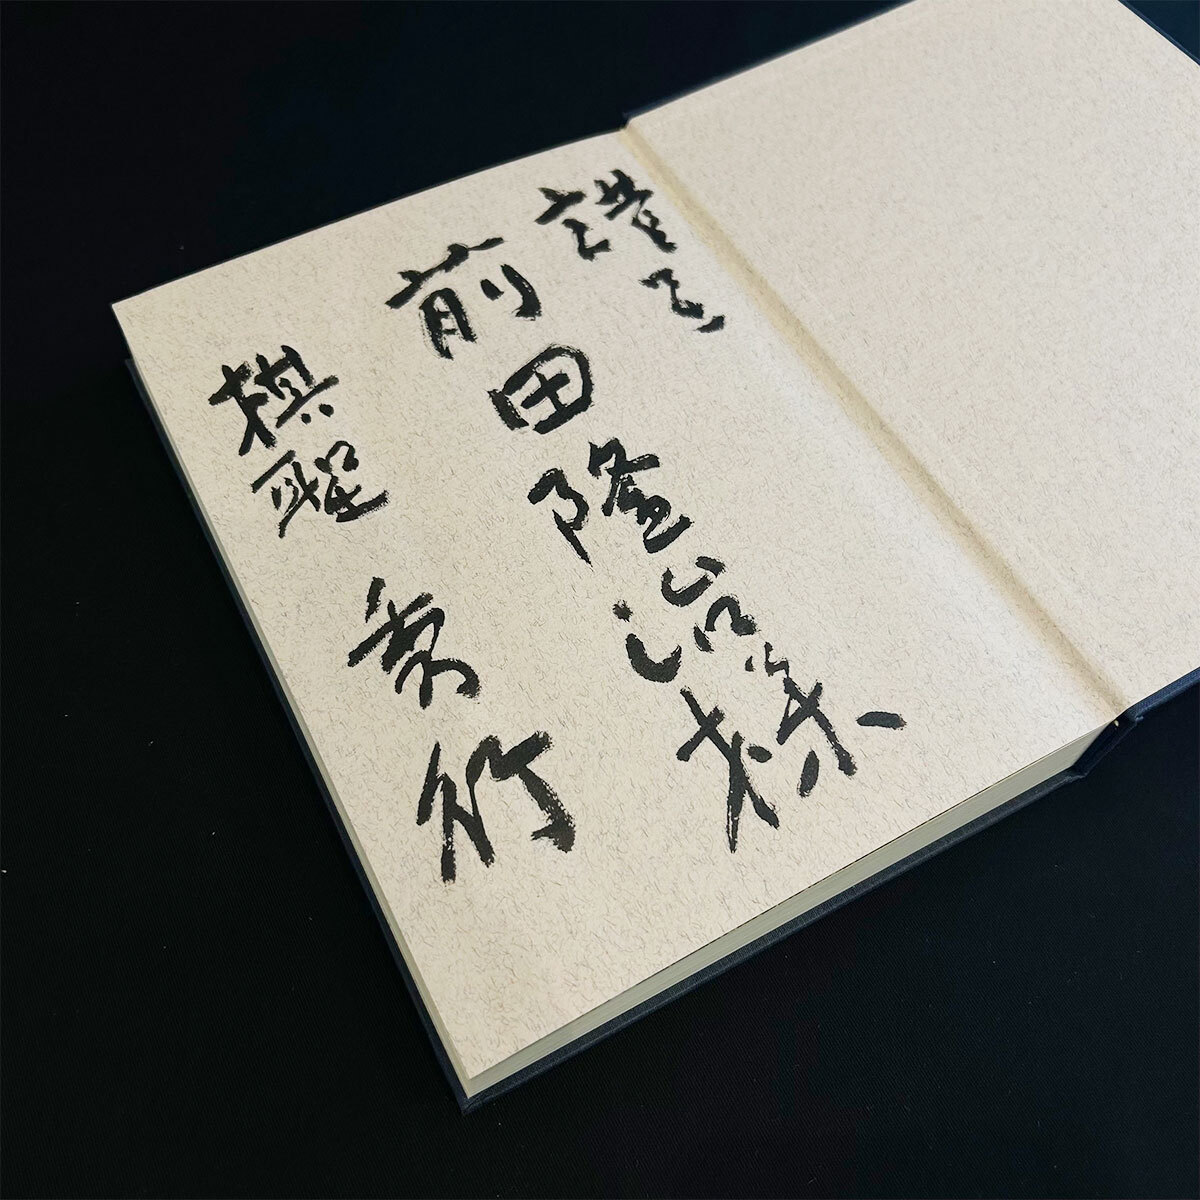 謹呈
前田隆治様
棋聖 秀行